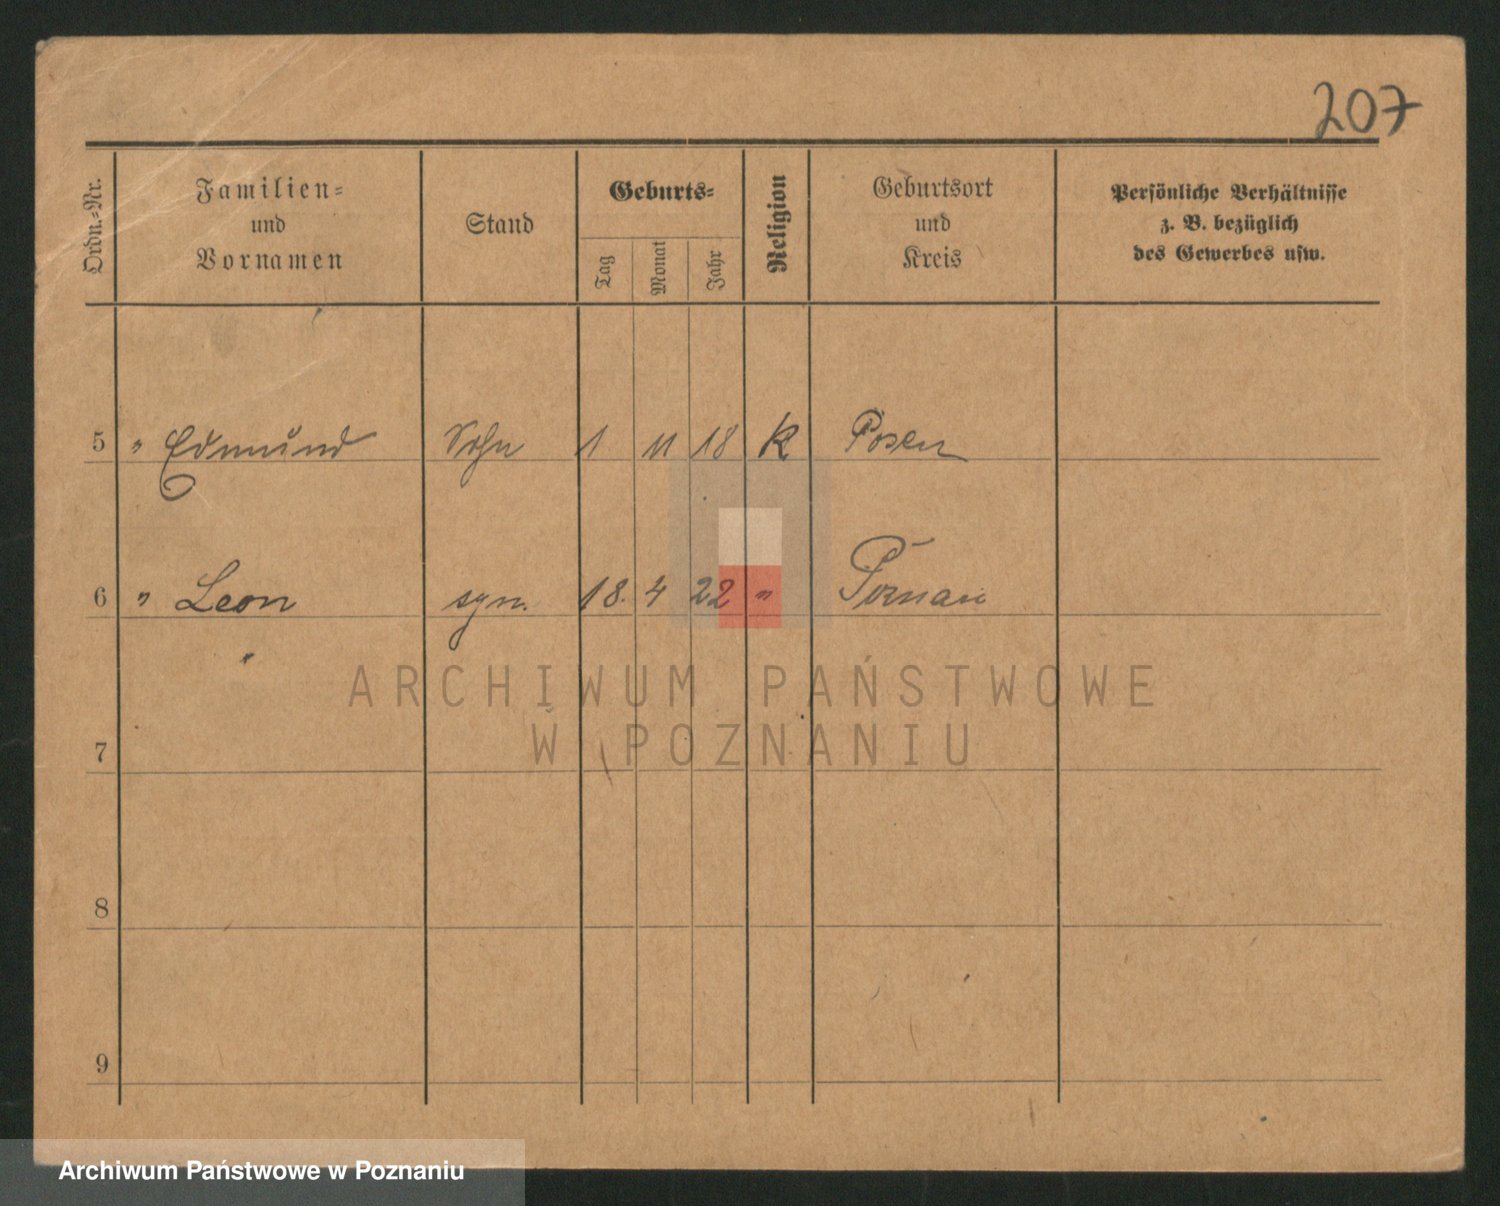 207
Ordn.-Nr.
Familien-
und
Vornamen
Stand
Geburts-
Tag
Monat
Jahr
Religion
Geburtsort
und
Kreis
Persönliche Verhältnisse
z. B. bezüglich
des Gewerbes usw.
5 " Edmund Sohn 1 11 18 K Posen
6 " Leon syn. 18. 4 22 " Poznań
ARCHIWUM PAŃSTWOWE
W POZNANIU
7
8
9
Archiwum Państwowe w Poznaniu